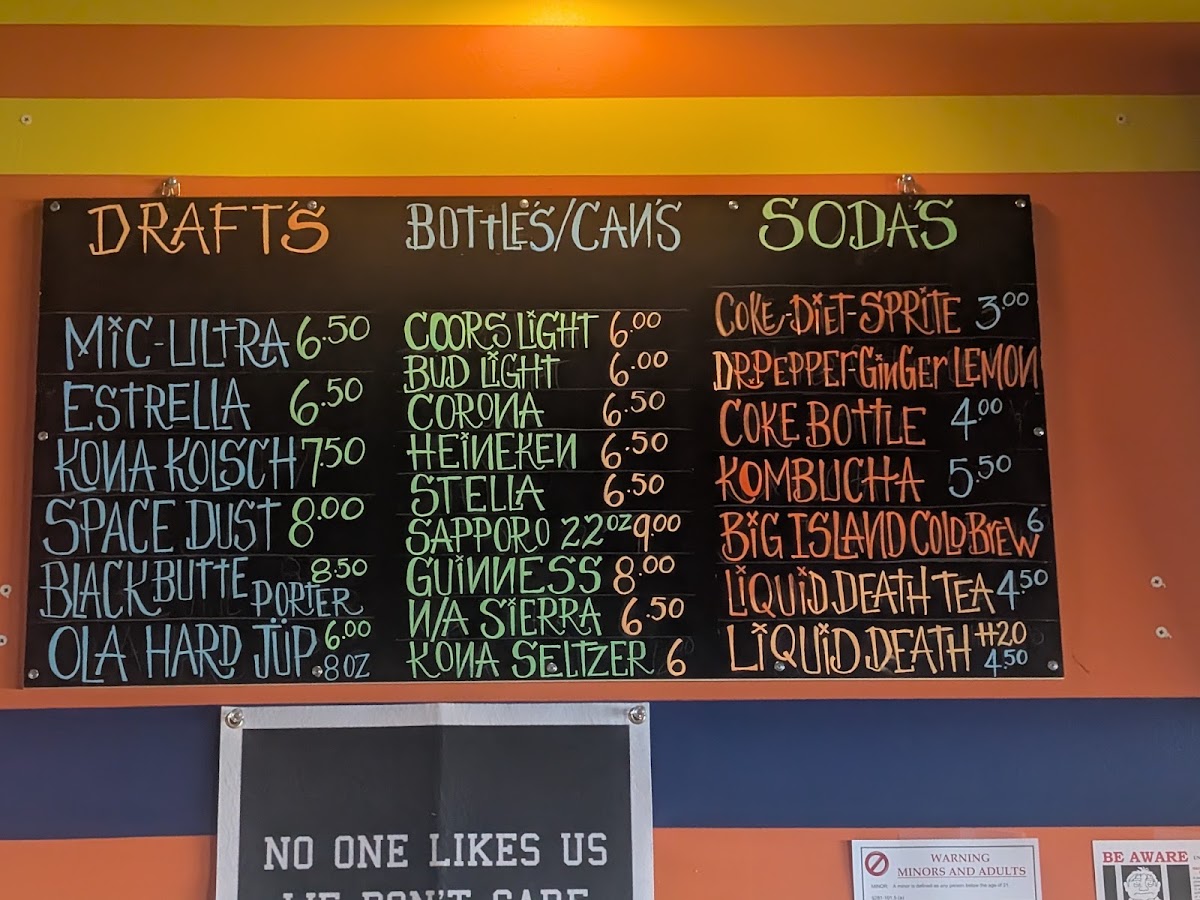 DRAFT'S
MiC-ULtRA 6.50
ESTRELLA 6.50
KONA KOLSCH 7.50
SPACE DUST 8.00
BLACK BUTTE PORTER 8.50
OLA HARD JÜP 6.00
8OZ
BOTtLE'S/CAN'S
COORS LiGHT 6.00
BUD LiGHT 6.00
CORONA 6.50
HEiNEKEN 6.50
STELLA 6.50
SAPPORO 22OZ 9.00
GUiNNESS 8.00
N/A SiERRA 6.50
KONA SELTZER 6
SODA'S
COKE-DiET-SPRiTE 3.00
DR.PEPPER-GiNGer LEMON
COKE BOTtLE 4.00
KOMBUCHA 5.50
BiG ISLAND COLD BREW 6
LiQUiD DEATH TEA 4.50
LiQUiD DEATH H2O
4.50
NO ONE LIKES US
WE DON'T CARE
WARNING
MINORS AND ADULTS
MINOR: A minor is defined as any person below the age of 21.
BE AWARE